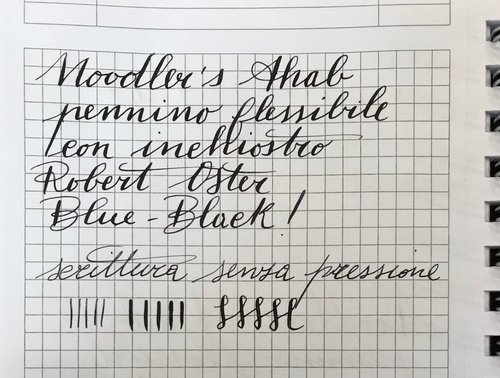 Noodler's Ahab
pennino flessibile
con inchiostro
Robert Oster
Blue-Black!
scrittura senza pressione